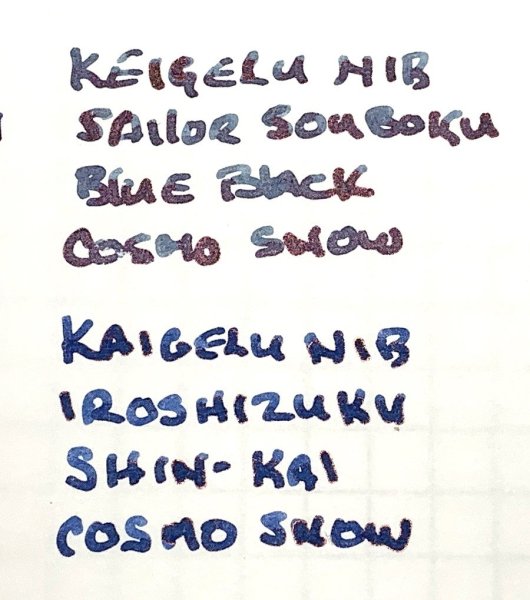 KEIGELU NIB
SAILOR SOUBOKU
BLUE BLACK
COSMO SNOW
KAIGELU NIB
IROSHIZUKU
SHIN-KAI
COSMO SNOW